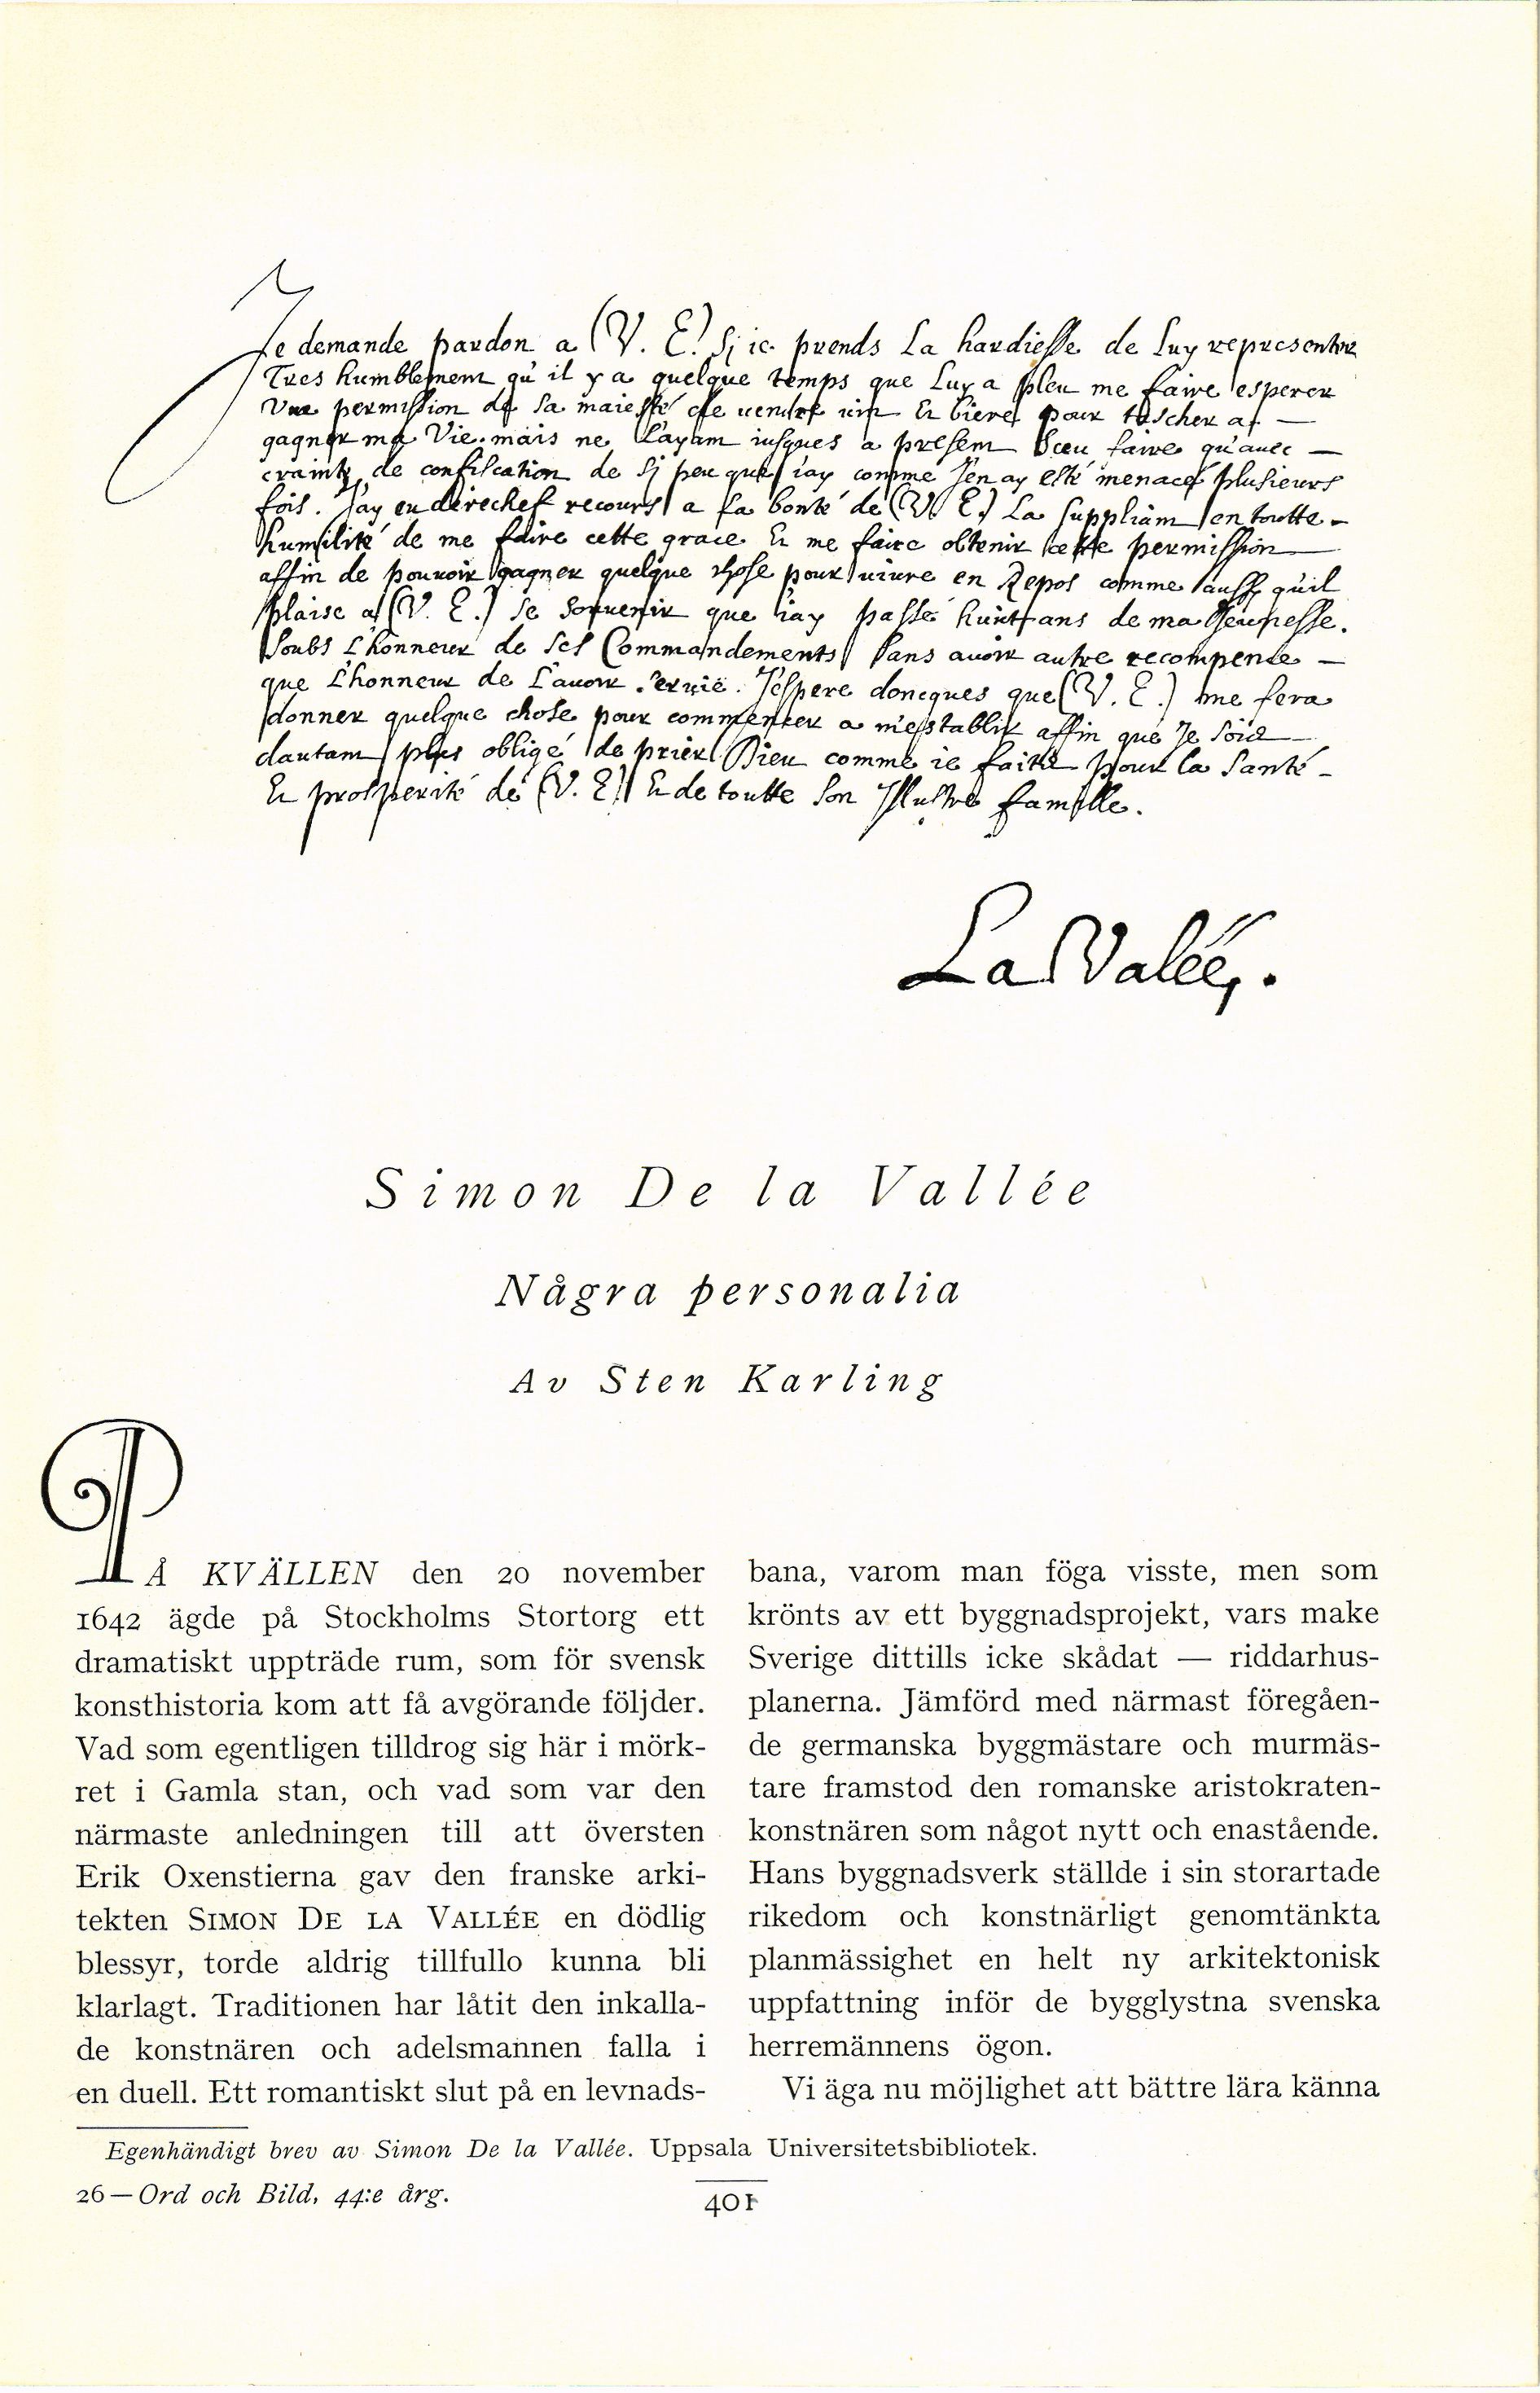 Je demande pardon a (V. E.) Si ie prends La hardiesse de Luy representer
Tres humblement qu'il y a quelque temps que Luy a pleu me faire esperer
Une permission de Sa maiesté de uendre uin Et biere pour tascher a
gagner ma Vie. mais ne L'ayant iusques a present sceu faire qu'auec
crainte de confiscation de Si peu que i'ay comme J'en ay esté menacé plusieurs
fois. J'ay eu derechef recours a La bonté de (V. E.) La Suppliant en toutte
humilité de me faire cette grace Et me faire obtenir cette permission
affin de pouuoir gagner quelque chose pour uiure en Repos comme aussy qu'il
plaise a (V. E.) Se Souuenir que i'ay passé huict ans de ma Jeunesse.
Soubs L'honneur de Ses Commandements Sans auoir autre recompense
que L'honneur de L'auoir seruie. J'espere doncques que (V. E.) me fera
donner quelque chose pour commencer a m'establir affin que Je Sois
dautant plus obligé de prier Dieu comme ie faits pour La Santé
Et prosperité de (V. E.) Et de toutte Son Illustre famille.
La Valée.
Simon De la Vallée
Några personalia
Av Sten Karling
PÅ KVÄLLEN den 20 november
1642 ägde på Stockholms Stortorg ett
dramatiskt uppträde rum, som för svensk
konsthistoria kom att få avgörande följder.
Vad som egentligen tilldrog sig här i mörk-
ret i Gamla stan, och vad som var den
närmaste anledningen till att översten
Erik Oxenstierna gav den franske arki-
tekten SIMON DE LA VALLÉE en dödlig
blessyr, torde aldrig tillfullo kunna bli
klarlagt. Traditionen har låtit den inkalla-
de konstnären och adelsmannen falla i
en duell. Ett romantiskt slut på en levnads-
bana, varom man föga visste, men som
krönts av ett byggnadsprojekt, vars make
Sverige dittills icke skådat — riddarhus-
planerna. Jämförd med närmast föregåen-
de germanska byggmästare och murmäs-
tare framstod den romanske aristokraten-
konstnären som något nytt och enastående.
Hans byggnadsverk ställde i sin storartade
rikedom och konstnärligt genomtänkta
planmässighet en helt ny arkitektonisk
uppfattning inför de bygglystna svenska
herremännens ögon.
Vi äga nu möjlighet att bättre lära känna
Egenhändigt brev av Simon De la Vallée. Uppsala Universitetsbibliotek.
26 — Ord och Bild, 44:e årg.
401